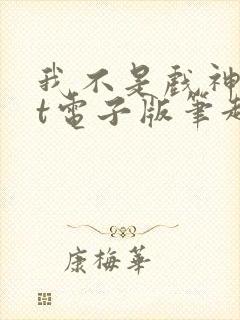 我不是戲神
t電子版筆趣
康梅華